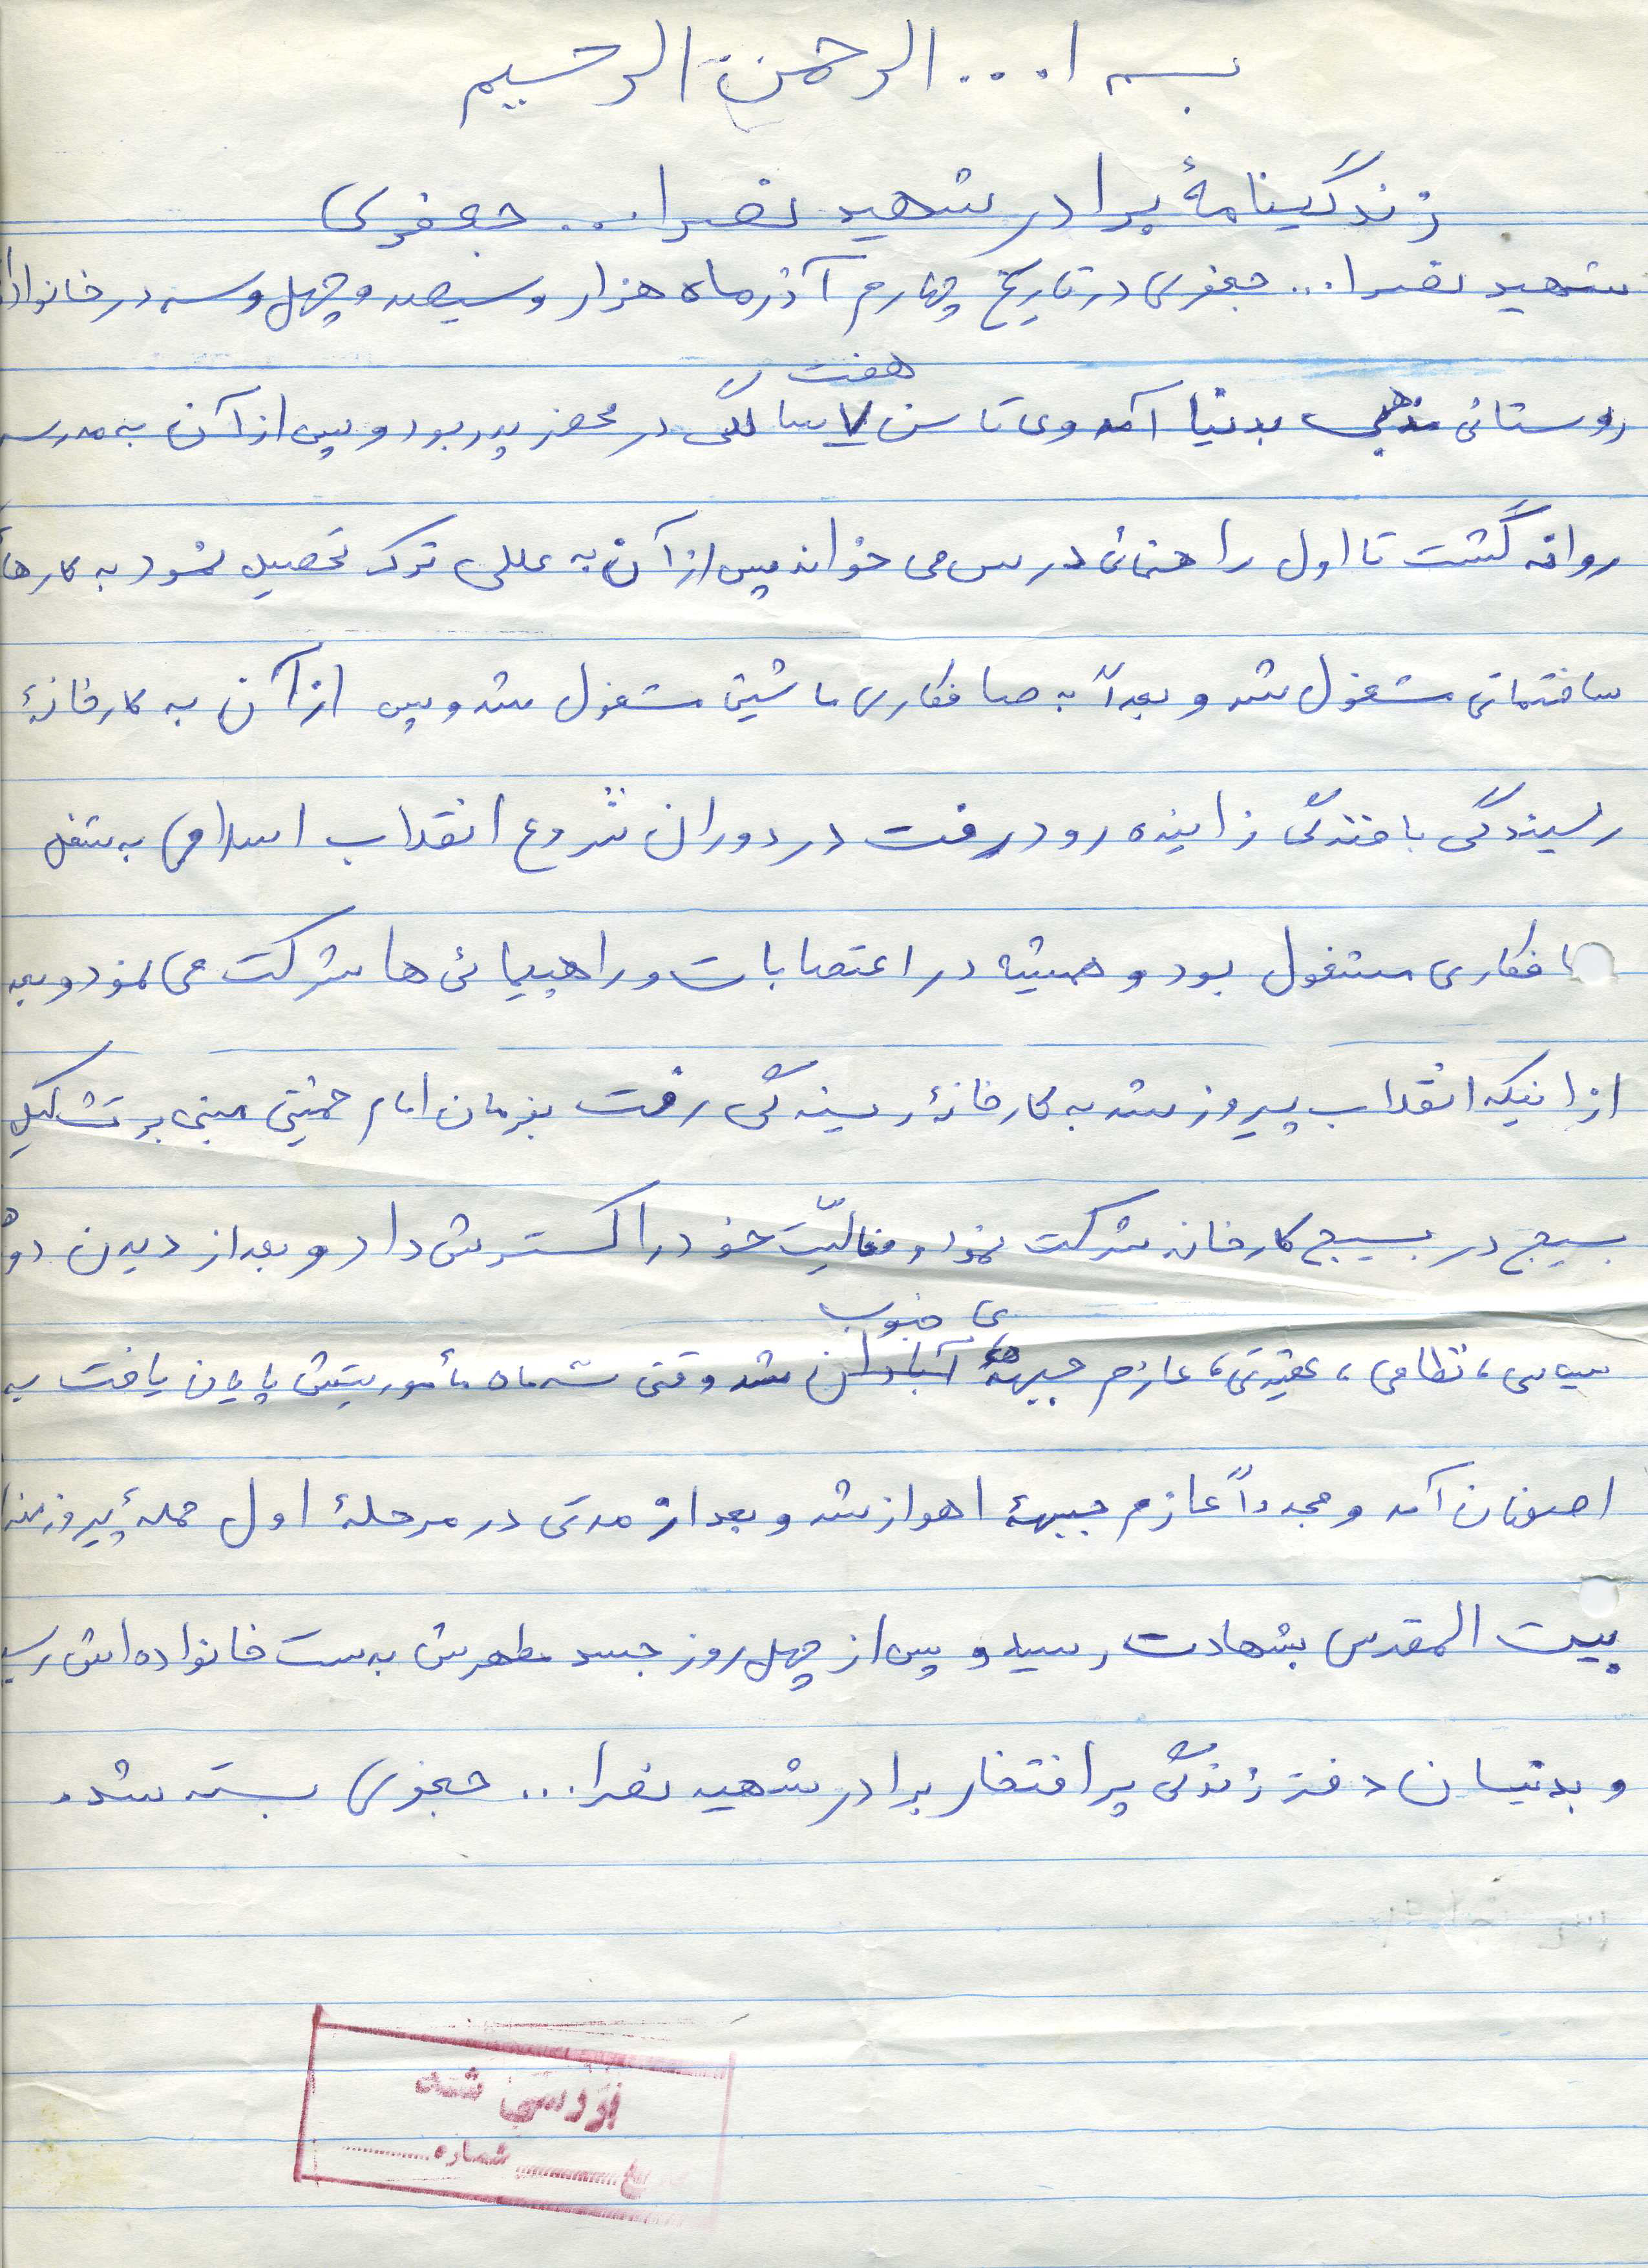 بسم ا... الرحمن الرحیم
زندگینامهٔ برادر شهید نصرا... جعفری
شهید نصرا... جعفری در تاریخ چهارم آذرماه هزار و سیصد و چهل و سه در خانواده
هفت
روستائی مذهبی بدنیا آمد وی تا سن ۷ سالگی در محضر پدر بود و پس از آن به مدرسه
روانه گشت تا اول راهنمائی درس می خواند پس از آن به عللی ترک تحصیل نمود به کارهای
ساختمانی مشغول شد و بعداً به صافکاری ماشین مشغول شد و پس از آن به کارخانهٔ
ریسندگی بافندگی زاینده رود رفت در دوران شروع انقلاب اسلامی به شغل
صافکاری مشغول بود و همیشه در اعتصابات و راهپیمائی ها شرکت می نمود و بعد
از اینکه انقلاب پیروز شد به کارخانهٔ ریسندگی رفت بفرمان امام خمینی مبنی بر تشکیل
بسیج در بسیج کارخانه شرکت نمود و فعالیّت خود را گسترش داد و بعد از دیدن دوره
ی جنوب
سیاسی، نظامی، عقیدتی، عازم جبهه آبادان شد وقتی سه ماه مأموریتش پایان یافت به
اصفهان آمد و مجدداً عازم جبههٔ اهواز شد و بعد از مدتی در مرحلهٔ اول حملهٔ پیروزمندا
بیت المقدس بشهادت رسید و پس از چهل روز جسد مطهرش بدست خانواده اش رسید
و بدنیسان دفتر زندگی پر افتخار برادر شهید نصرا... جعفری بسته شد.
بررسی شد
شماره